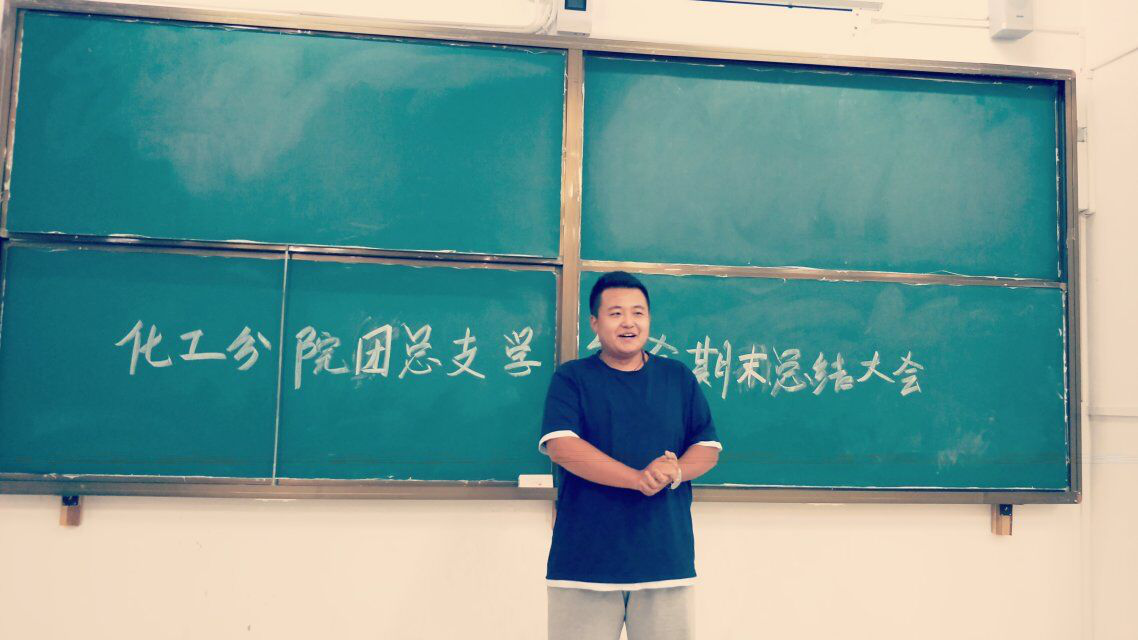 化工分院团总支学 期末总结大会